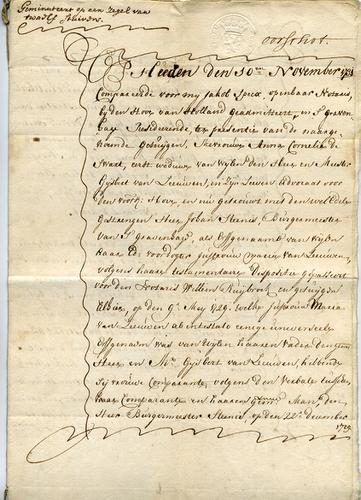 Geminuteert op een Zegel van
twaalf stuivers.
Op Heeden den 30en November
Compareerde voor my Jakob Spex, openbaar Notaris,
by den Hove van Holland geadmitteert, en 's Graven
hage Resideerende, ter presentie van de naage
noemde getuijgen, Mevrouwe Anna Cornelia de
eerst weduwe van wylen den Heer en Meester
Gysbert van Leeuwen, in zyn Leven advocaat voor
den voorsz. Hove, en nu getrouwt met den wel Edele
Heer Johan Steenis, Burgermeester
van 's Gravenhage, als Erfgenaam van wylen
haar Ed: voordogter Juffrouw Maria van Leeuwen,
volgens haare testamentaire dispositie gepasseert
voor den Notaris Willem Ruysbroek en getuijgen
op den 9e Mey 1729. welke Juffrouw Maria
van Leeuwen ab intestato eenige universeele
Erfgenaam was van wylen haaren vader den
Heer en Mr. Gysbert van Leeuwen, hebbende
zy vrouwe Comparante, volgens den verbale tussen
haar Comparante en haaren Man, den
Heer Burgermeester Steenis, op den 22e december
1729